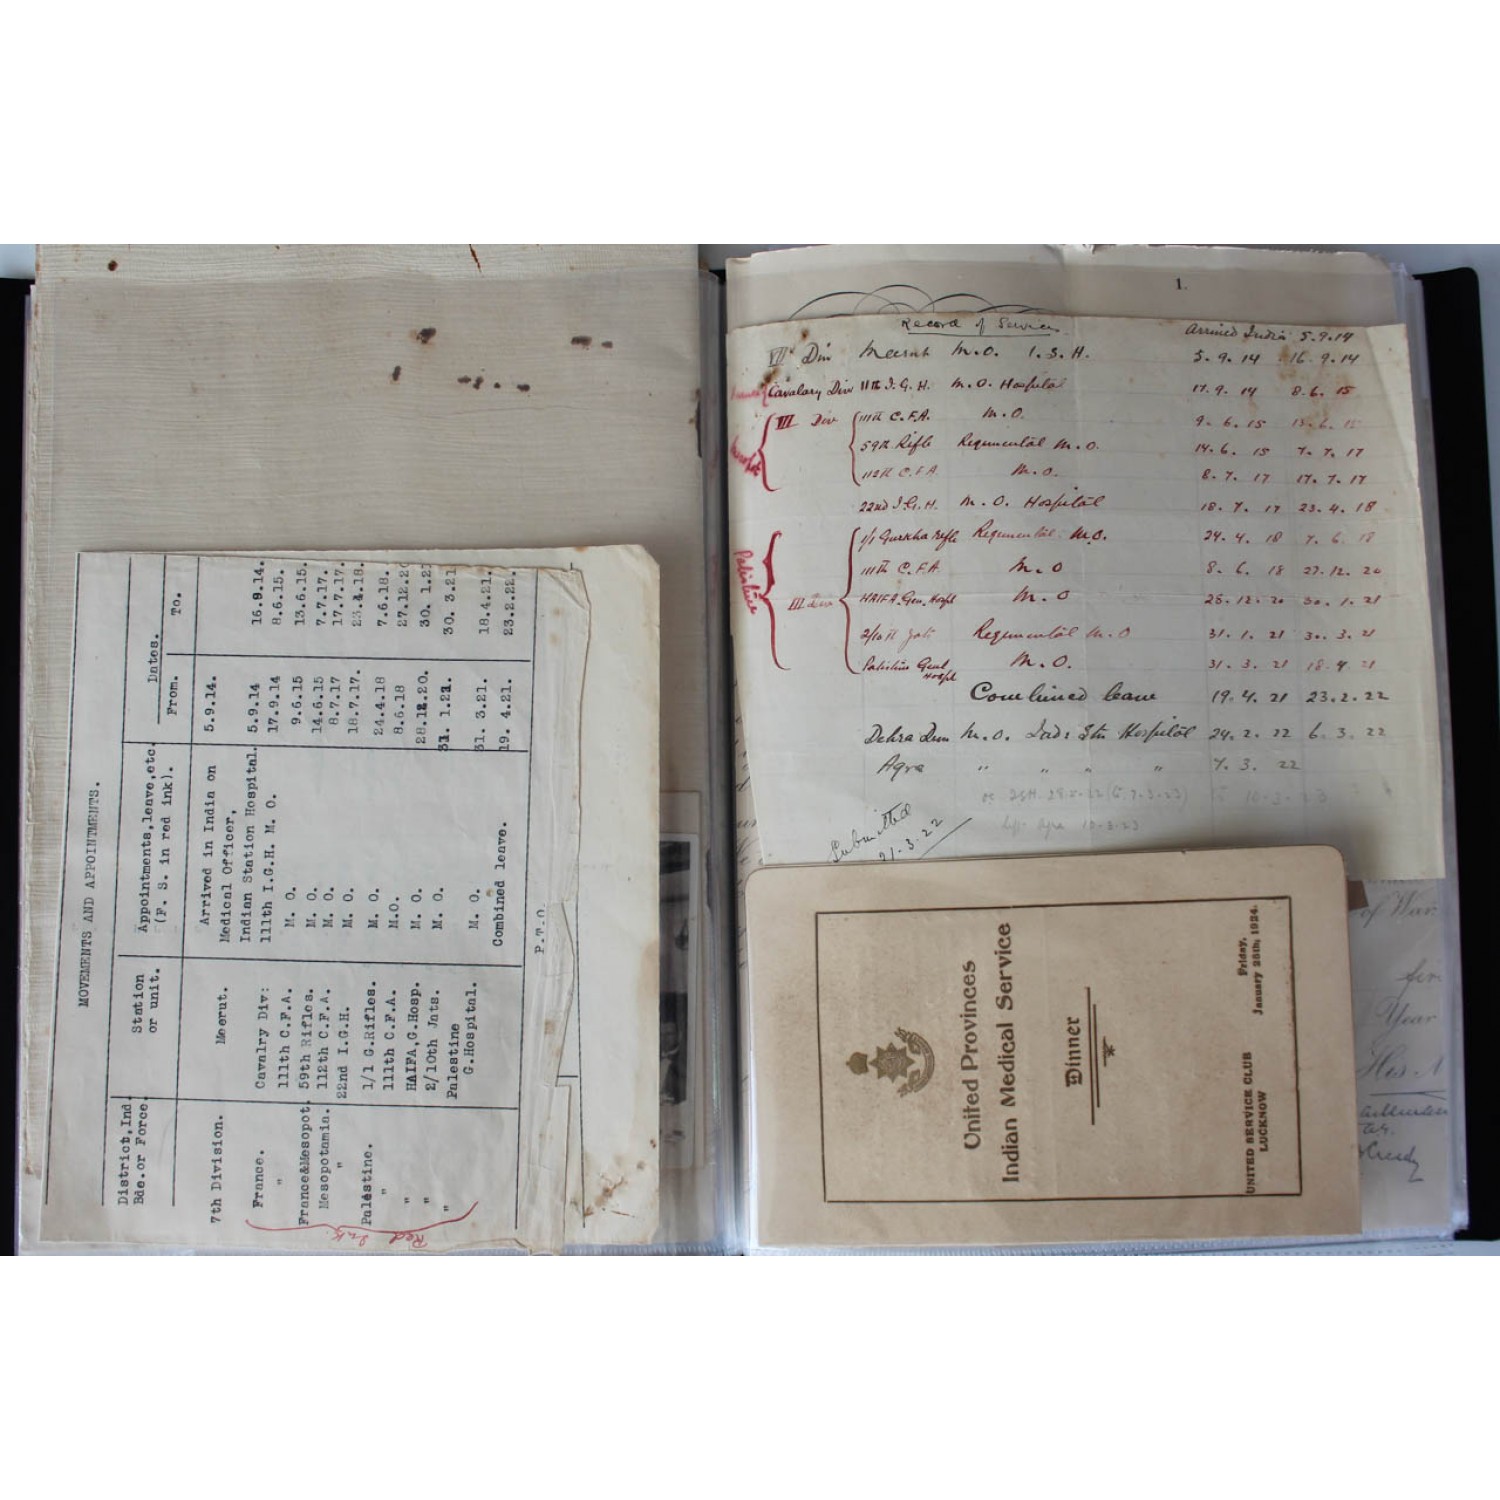 MOVEMENTS AND APPOINTMENTS.
District,Ind. Station Appointments,leave,etc. Dates.
Bde.or Force. or unit. (F. S. in red ink). From. To.
Arrived in India on 5.9.14.
7th Division. Meerut. Medical Officer,
Indian Station Hospital. 5.9.14 16.9.14.
France. Cavalry Div: 111th I.G.H. M. O. 17.9.14 8.6.15.
" 111th C.F.A. M. O. 9.6.15 13.6.15.
France&Mesopot. 59th Rifles. M. O. 14.6.15 7.7.17.
Mesopotamia. 112th C.F.A. M. O. 8.7.17 17.7.17.
" 22nd I.G.H. M. O. 18.7.17. 23.4.18.
Palestine. 1/1 G.Rifles. M. O. 24.4.18 7.6.18.
" 111th C.F.A. M.O. 8.6.18 27.12.20
" HAIFA,G.Hosp. M. O. 28.12.20. 30. 1.21
" 2/10th Jats. M. O. 31. 1.21. 30. 3.21
" Palestine
G.Hospital. M. O. 31. 3.21. 18.4.21.
Combined leave. 19. 4.21. 23.2.22.
P.T.O.
Red Ink.
1.
Record of Services Arrived India 5.9.14
VII Div Meerut M.O. I.S.H. 5.9.14 16.9.14
Cavalary Divn 111th I.G.H. M.O. Hospital 17.9.14 8.6.15
III Div 111th C.F.A. M.O. 9.6.15
59th Rifle Regimental M.O. 14.6.15 7.7.17
112th C.F.A M.O. 8.7.17 17.7.17
22nd I.G.H. M.O. Hospital 18.7.17 23.4.18
Palistine
1/1 Gurkha Rifle Regimental M.O. 24.4.18 7.6.18
111th C.F.A M.O 8.6.18 27.12.20
III Div HAIFA Gen. Hospl M.O 28.12.20 30.1.21
2/10th Jats Regimental M.O 31.1.21 30.3.21
Palistine Genl Hospl M.O. 31.3.21 18.4.21
Combined leave 19.4.21 23.2.22
Dehra Dun M.O. Ind: Stn Hospital 24.2.22 6.3.22
Agra " " " " 7.3.22
10-3-23
Submitted
21.3.22
United Provinces
Indian Medical Service
Dinner
UNITED SERVICE CLUB
LUCKNOW
Friday,
January 25th, 1924.
of War
for
Year
His